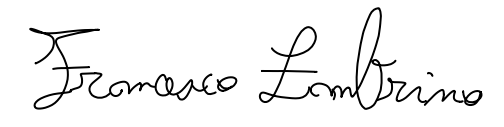 Francesco Lombrino